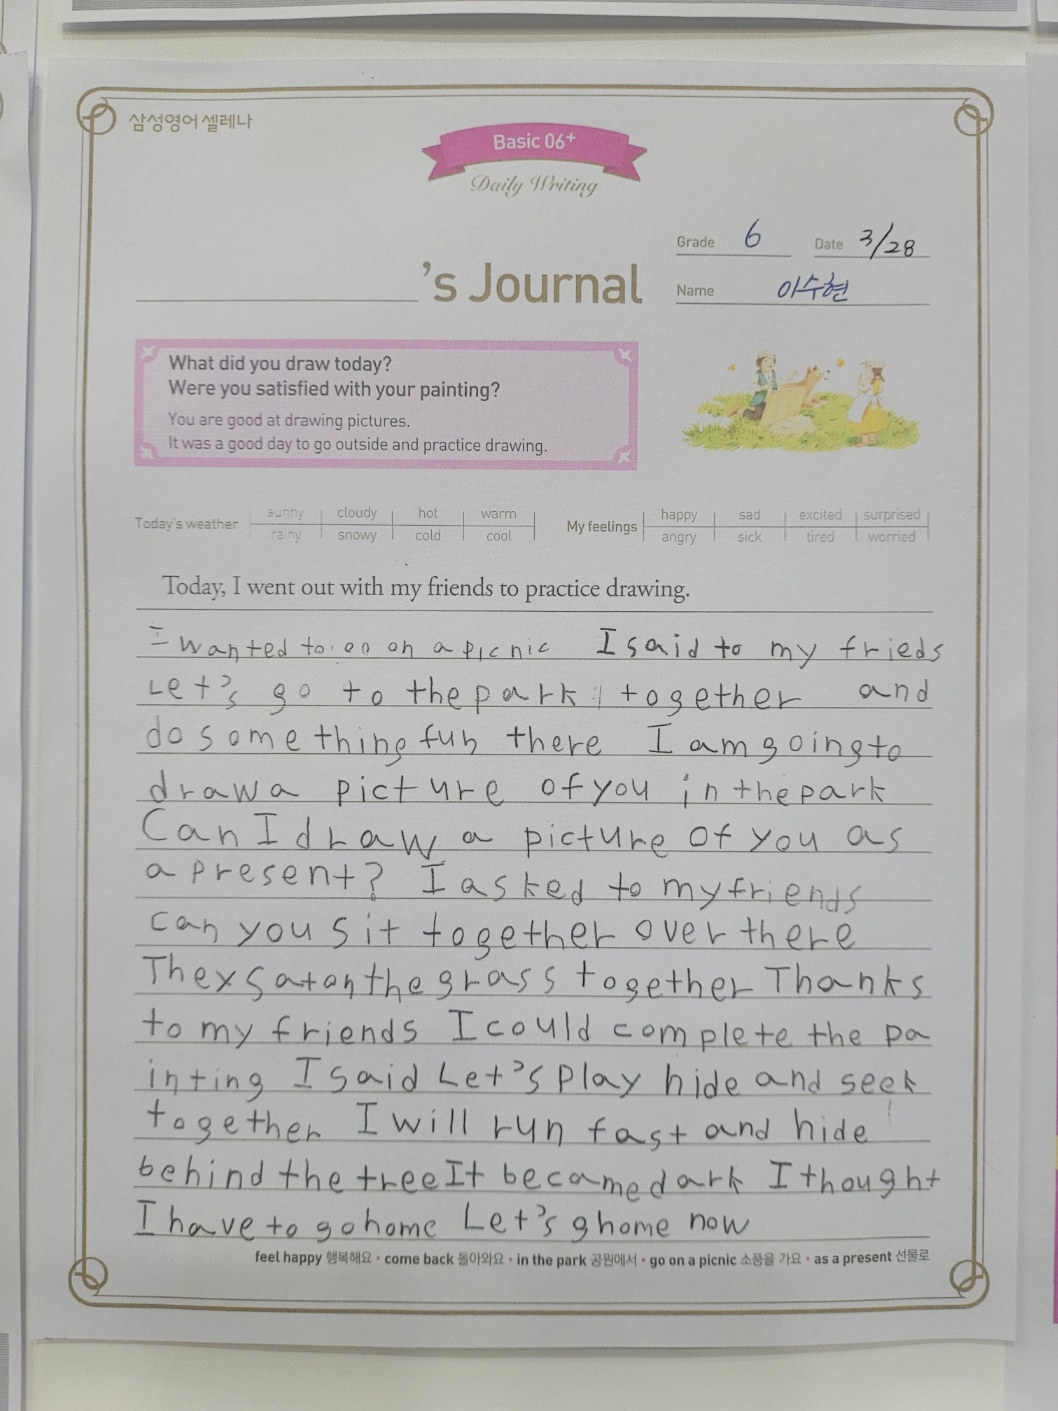 삼성영어 셀레나
Basic 06+
Daily Writing
Grade 6 Date 3/28
's Journal
Name 이수현
What did you draw today?
Were you satisfied with your painting?
You are good at drawing pictures.
It was a good day to go outside and practice drawing.
Today's weather sunny cloudy hot warm
rainy snowy cold cool
My feelings happy sad excited surprised
angry sick tired worried
Today, I went out with my friends to practice drawing.
I wanted to go on a picnic I said to my frieds
Let's go to the park together and
do something fun there I am going to
draw a picture of you in the park
Can I draw a picture of you as
a present? I asked to my friends
can you sit together over there
They sat on the grass together Thanks
to my friends I could complete the pa
inting I said Let's play hide and seek
together I will run fast and hide
behind the tree It became dark I thought
I have to go home Let's g home now
feel happy 행복해요 • come back 돌아와요 • in the park 공원에서 • go on a picnic 소풍을 가요 • as a present 선물로